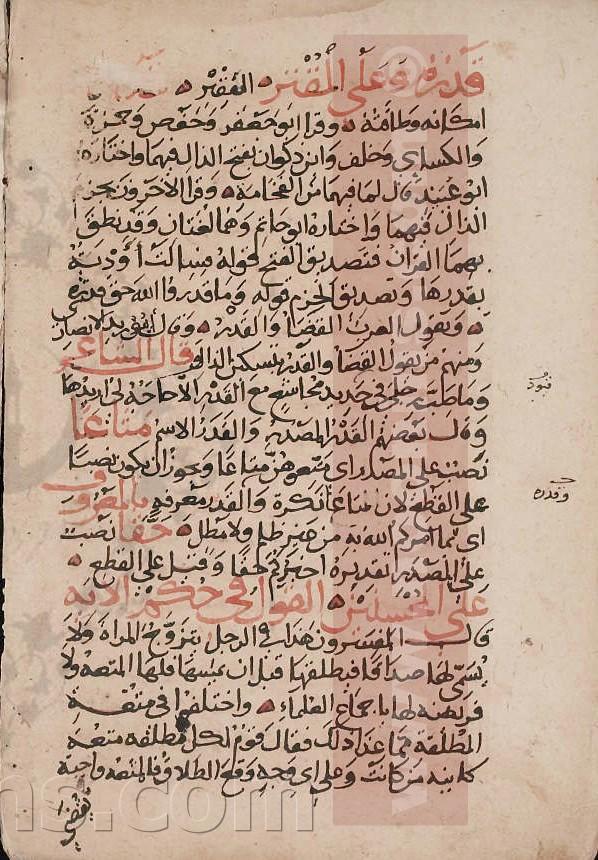 قدره وَعَلَى المُقْتِر الفقير
امكانه وطاقته وقرا ابو جعفر وحفص وحمزة
والكساي وخلف وابن ذكوان بفتح الدال فيهما واختاره
ابو عبيد قال لما فيهما من الفخامة وقرا الآخرون بجزم
الدال فيهما واختاره ابو حاتم وهما لغتان وقد نطق
بهما القران فتصديق الفتح قوله فسالت أودية
بقدرها وتصديق الجزم قوله وما قدروا الله حق قدره
وتقول العرب القضا والقدر وقال
ومنهم من يقول القضا والقدر بتسكين الدال قال الشاعر
وما صب رجلي في حديد مجاشع مع القدر الا حاجة لي اريدها
وقال بعضهم القدر المصدر والقدر الاسم متاعًا
نصب على المصدر اي متعوهن متاعًا ويجوز ان يكون نصبًا
على القطع لان متاعا نكرة والقدر معرفه بالمعروف
اي بما امركم الله به من غير ظلم ولا مطل حقًا نصب
على المصدر تقديره حقا وقيل على القطع
على المحسنين القول في حكم الآية
قال المفسرون هذا في الرجل يتزوج المراة ولا
يسمي لها صداقا فيطلقها قبل ان يمسها فلها المتعه ولا
فريضه لها باجماع العلماء واختلفوا في متعة
المطلقة فيما عدا ذلك فقال قوم لكل مطلقه متعة
كاينه من كانت وعلى اي وجه وقع الطلاق والمتعه واجبة
وقدره